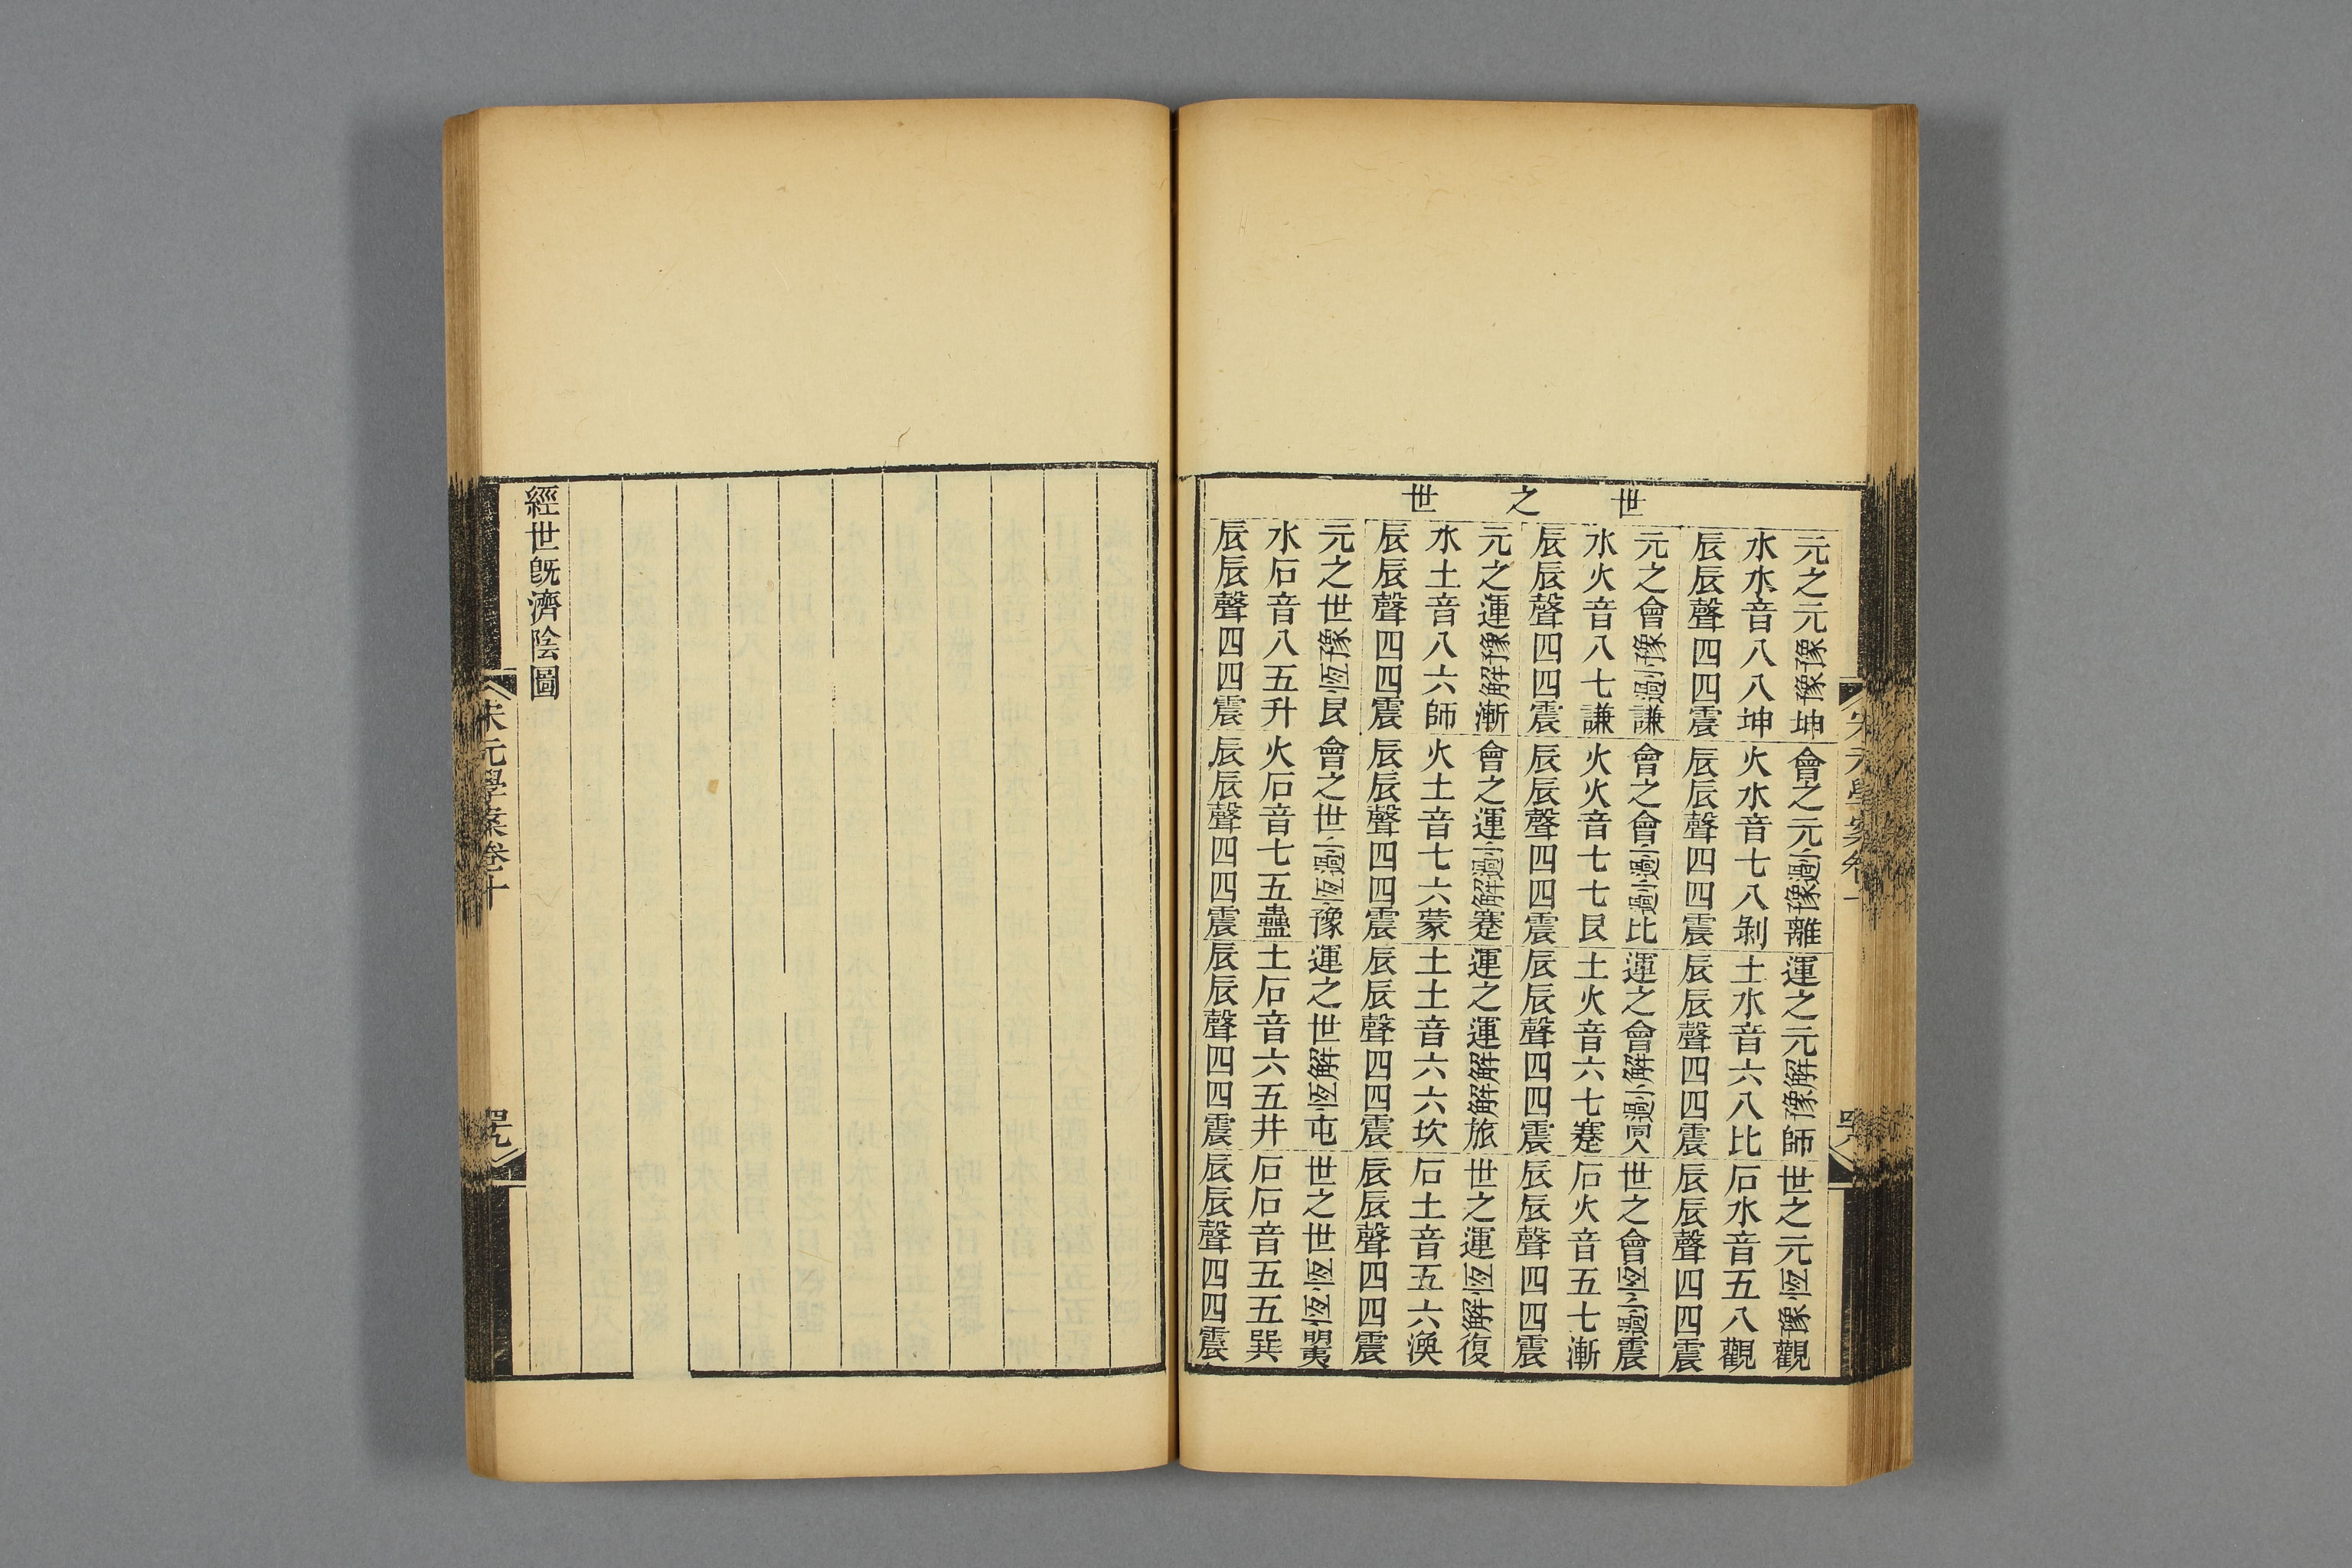 世之世
元之元豫豫坤會之元小過豫離運之元解豫師世之元恆豫觀
水水音八八坤火水音七八剝土水音六八比石水音五八觀
辰辰聲四四震辰辰聲四四震辰辰聲四四震辰辰聲四四震
元之會豫小過謙會之會小過小過比運之會解小過同人世之會恆小過震
水火音八七謙火火音七七艮土火音六七蹇石火音五七漸
辰辰聲四四震辰辰聲四四震辰辰聲四四震辰辰聲四四震
元之運豫解漸會之運小過解蹇運之運解解旅世之運恆解復
水土音八六師火土音七六蒙土土音六六坎石土音五六渙
辰辰聲四四震辰辰聲四四震辰辰聲四四震辰辰聲四四震
元之世豫恆艮會之世小過恆豫運之世解恆屯世之世恆恆明夷
水石音八五升火石音七五蠱土石音六五井石石音五五巽
辰辰聲四四震辰辰聲四四震辰辰聲四四震辰辰聲四四震
經世旣濟陰圖
宋元學案卷十
四九